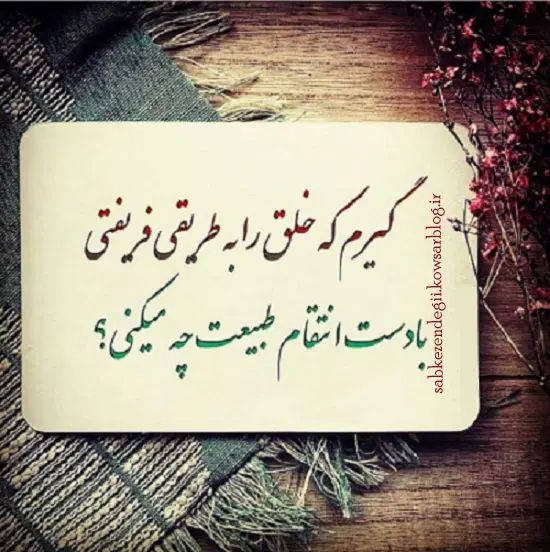 گیرم که خلق را به طریقی فریفتی
با دست انتقام طبیعت چه میکنی؟
sabkezendegii.kowsarblog.ir